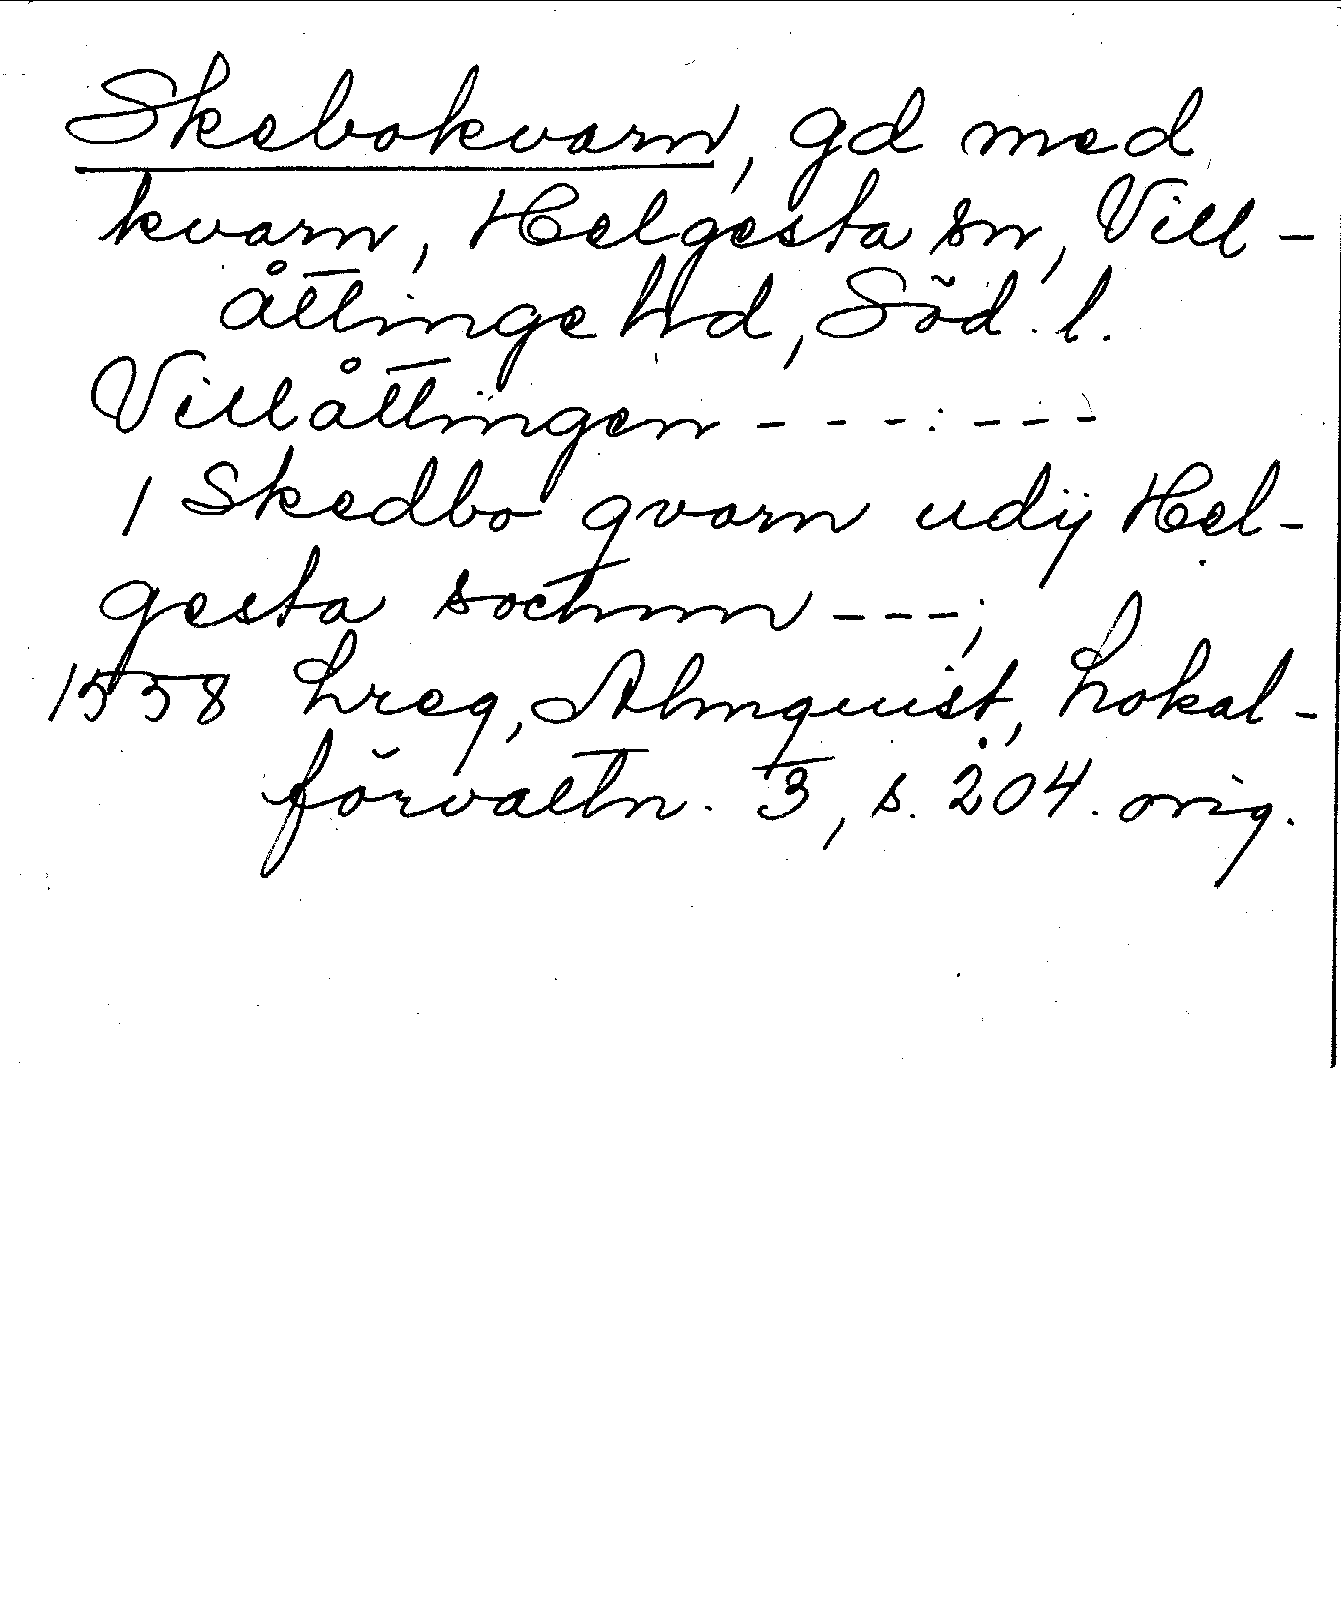 Skebokvarn, gd med
kvarn, Helgesta sn, Vill-
åttinge hd, Söd. l.
Villåttingen - - - - - -
1 Skedbo qvarn udij Hel-
gesta sochnn - - -;
1558 Lreg, Almquist, Lokal-
förvaltn. 3, s. 204. orig.